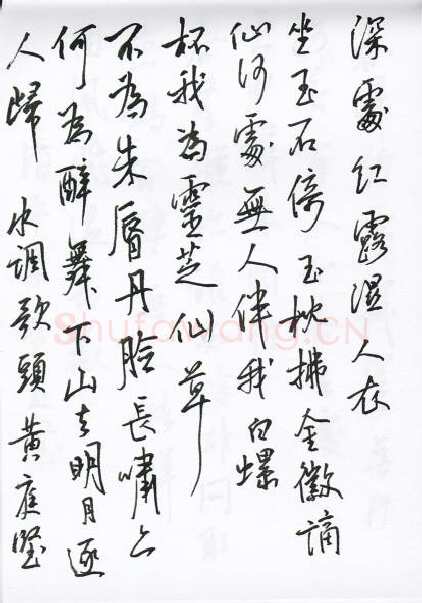 深處红露濕人衣
坐玉石倚玉枕拂金徽謫
仙何處無人伴我白螺
杯我為靈芝仙草
不為朱脣丹臉長嘯亦
何為醉舞下山去明月逐
人歸 水調歌頭 黄庭堅
Shufawang.CN